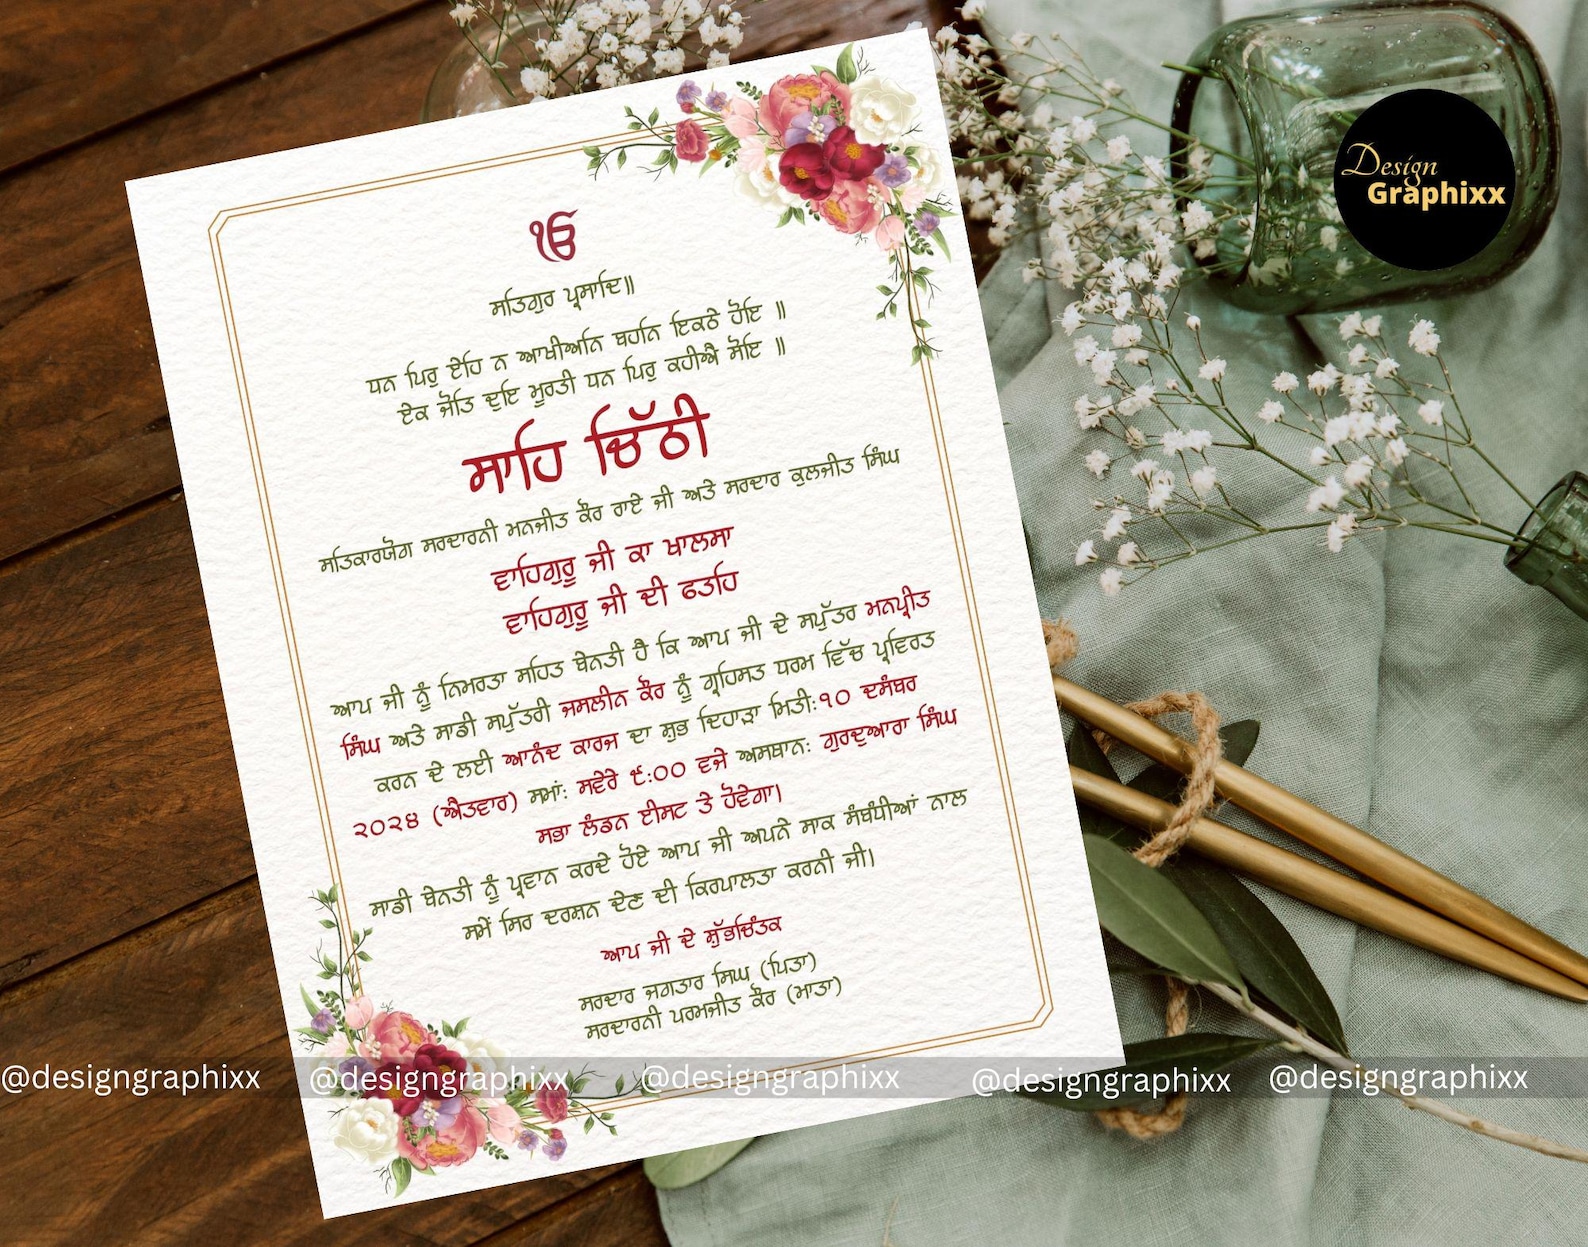 ੴ
ਸਤਿਗੁਰ ਪ੍ਰਸਾਦਿ॥
ਧਨ ਪਿਰੁ ਏਹਿ ਨ ਆਖੀਅਨਿ ਬਹਨਿ ਇਕਠੇ ਹੋਇ ॥
ਏਕ ਜੋਤਿ ਦੁਇ ਮੂਰਤੀ ਧਨ ਪਿਰੁ ਕਹੀਐ ਸੋਇ ॥
ਸਾਹਿ ਚਿੱਠੀ
ਸਤਿਕਾਰਯੋਗ ਸਰਦਾਰਨੀ ਮਨਜੀਤ ਕੌਰ ਰਾਏ ਜੀ ਅਤੇ ਸਰਦਾਰ ਕੁਲਜੀਤ ਸਿੰਘ
ਵਾਹਿਗੁਰੂ ਜੀ ਕਾ ਖਾਲਸਾ
ਵਾਹਿਗੁਰੂ ਜੀ ਦੀ ਫਤਹਿ
ਆਪ ਜੀ ਨੂੰ ਨਿਮਰਤਾ ਸਹਿਤ ਬੇਨਤੀ ਹੈ ਕਿ ਆਪ ਜੀ ਦੇ ਸਪੁੱਤਰ ਮਨਪ੍ਰੀਤ
ਸਿੰਘ ਅਤੇ ਸਾਡੀ ਸਪੁੱਤਰੀ ਜਸਲੀਨ ਕੌਰ ਨੂੰ ਗ੍ਰਹਿਸਤ ਧਰਮ ਵਿੱਚ ਪ੍ਰਵਿਰਤ
ਕਰਨ ਦੇ ਲਈ ਆਨੰਦ ਕਾਰਜ ਦਾ ਸ਼ੁਭ ਦਿਹਾੜਾ ਮਿਤੀ:੧੦ ਦਸੰਬਰ
੨੦੨੪ (ਐਤਵਾਰ) ਸਮਾਂ: ਸਵੇਰੇ ੯:੦੦ ਵਜੇ ਅਸਥਾਨ: ਗੁਰਦੁਆਰਾ ਸਿੰਘ
ਸਭਾ ਲੰਡਨ ਈਸਟ ਤੇ ਹੋਵੇਗਾ।
ਸਾਡੀ ਬੇਨਤੀ ਨੂੰ ਪ੍ਰਵਾਨ ਕਰਦੇ ਹੋਏ ਆਪ ਜੀ ਅਪਨੇ ਸਾਕ ਸੰਬੰਧੀਆਂ ਨਾਲ
ਸਮੇਂ ਸਿਰ ਦਰਸ਼ਨ ਦੇਣ ਦੀ ਕਿਰਪਾਲਤਾ ਕਰਨੀ ਜੀ।
ਆਪ ਜੀ ਦੇ ਸ਼ੁੱਭਚਿੰਤਕ
ਸਰਦਾਰ ਜਗਤਾਰ ਸਿੰਘ (ਪਿਤਾ)
ਸਰਦਾਰਨੀ ਪਰਮਜੀਤ ਕੌਰ (ਮਾਤਾ)
Design
Graphixx
@designgraphixx @designgraphixx @designgraphixx @designgraphixx @designgraphixx